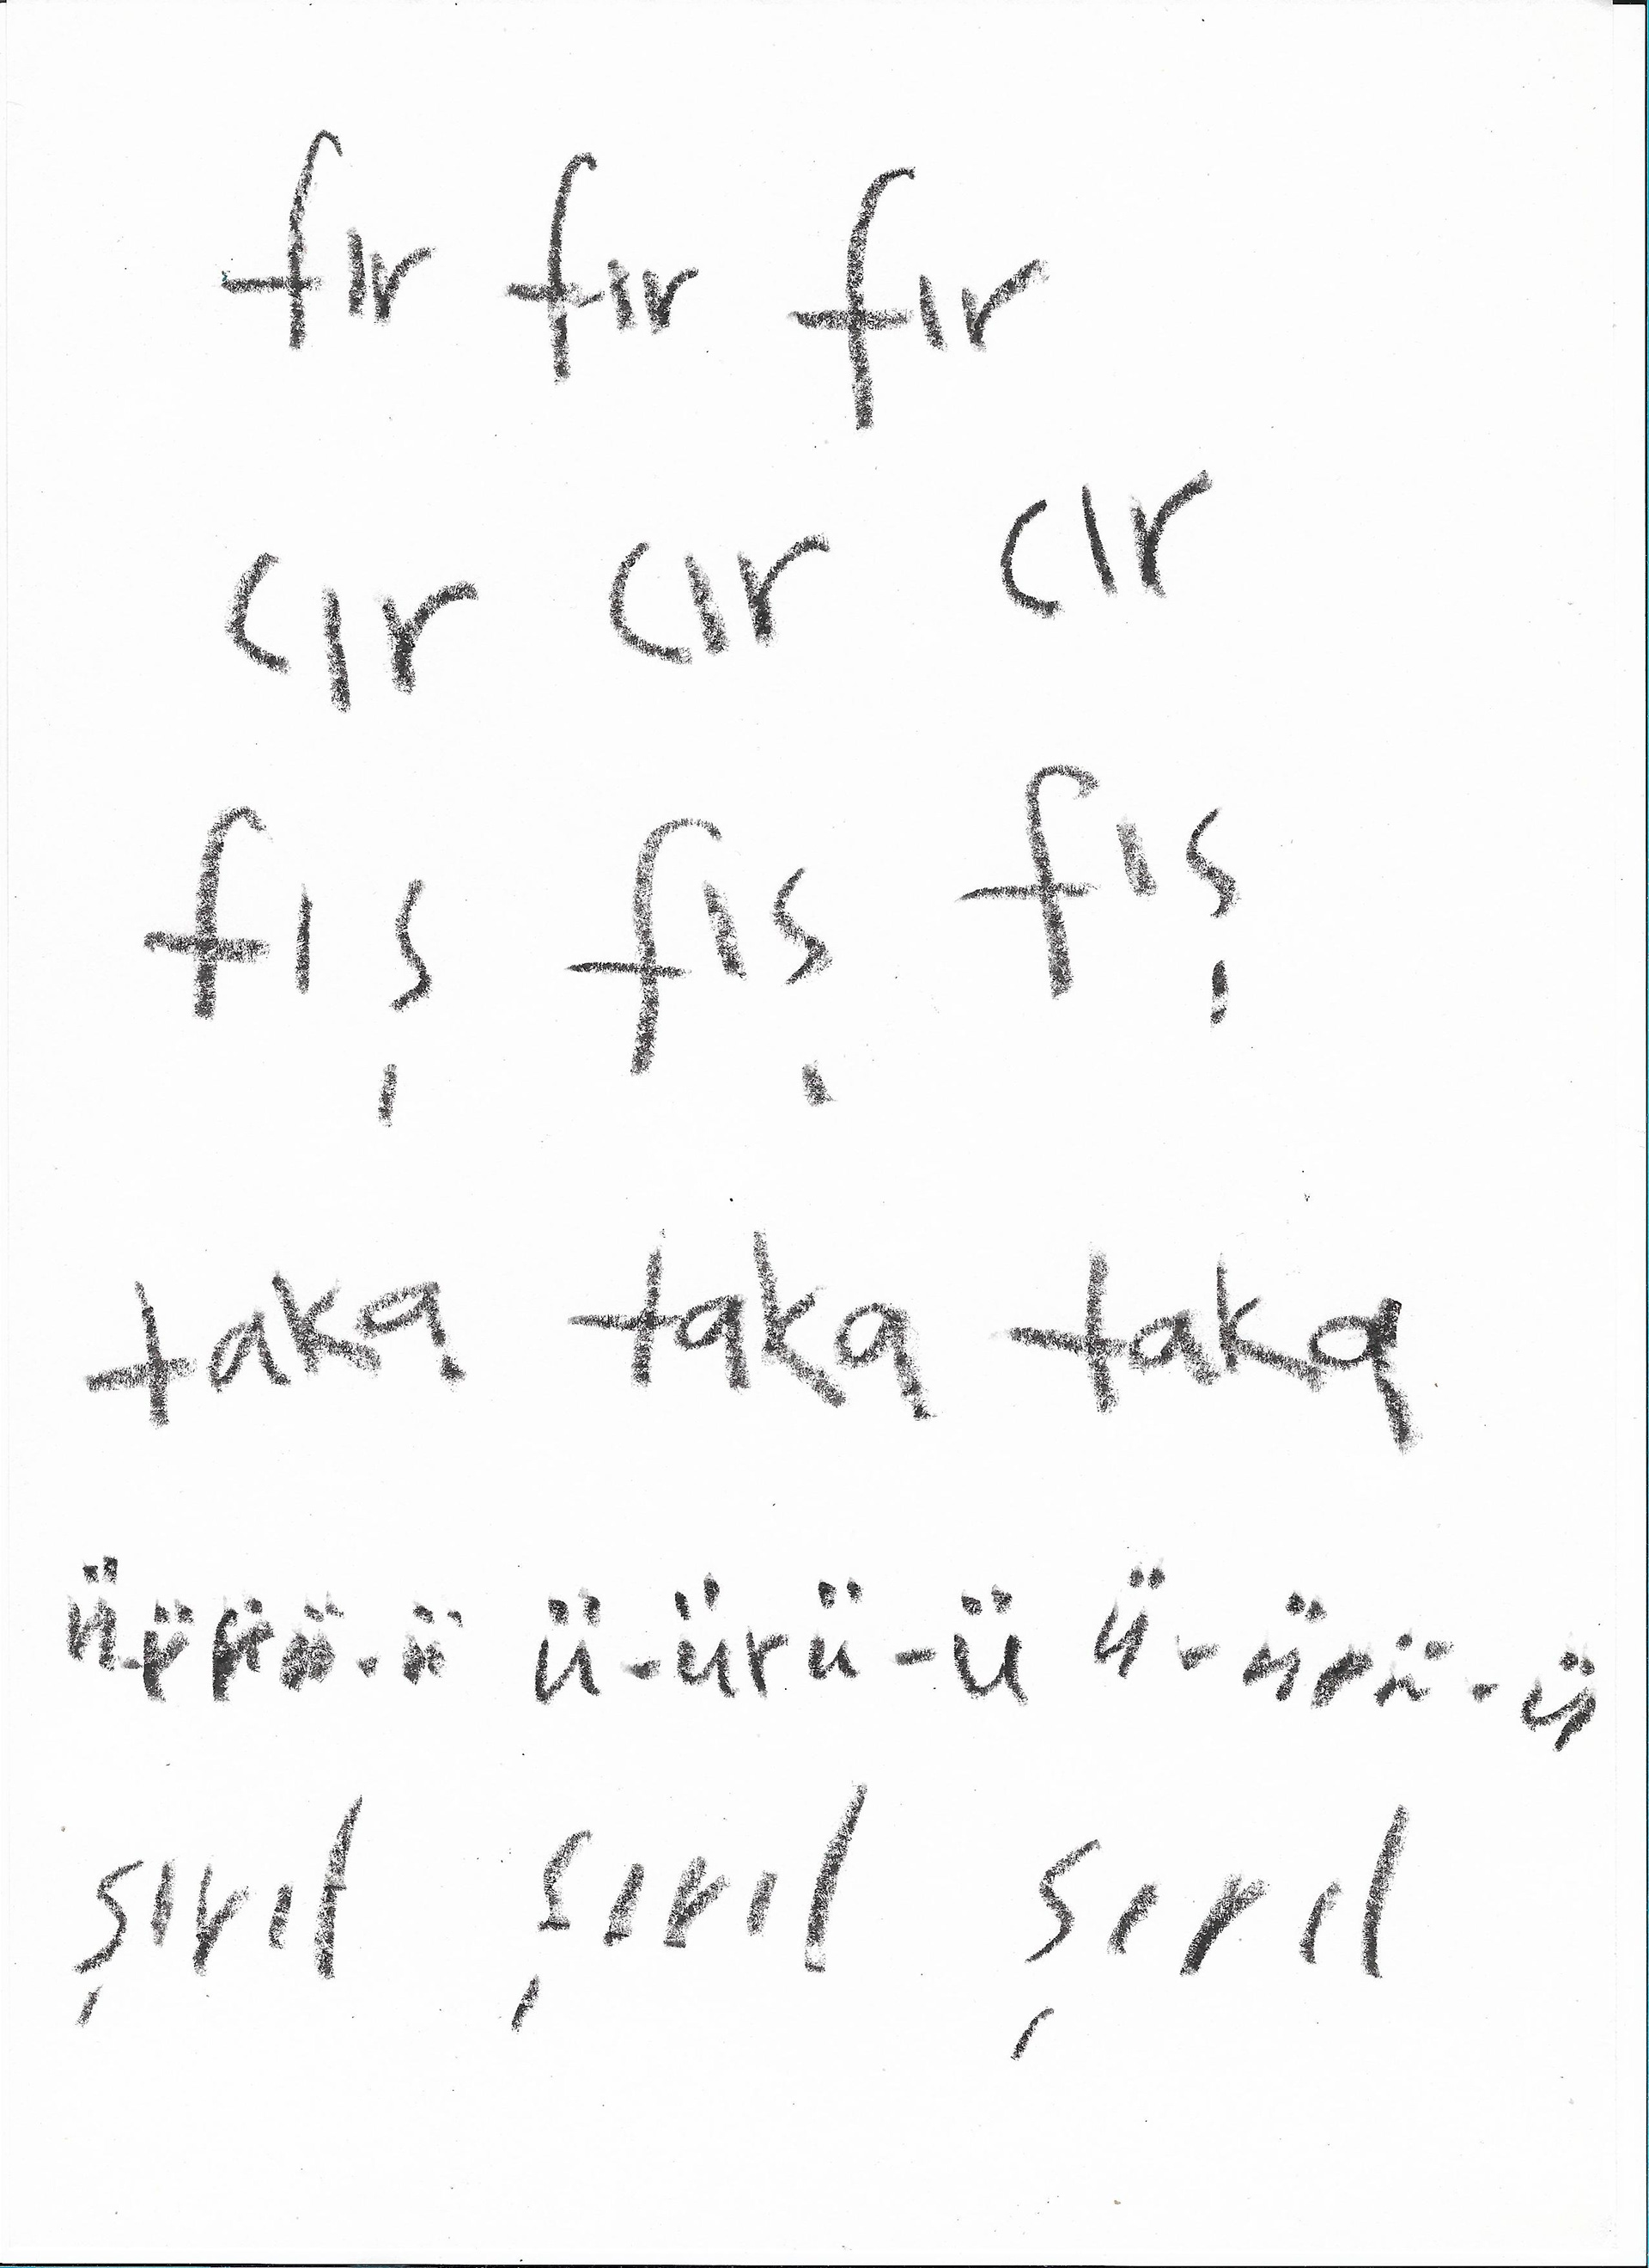 fır fır fır
cır cır cır
fış fış fış
taka taka taka
ü-ürü-ü ü-ürü-ü
şırıl şırıl şırıl